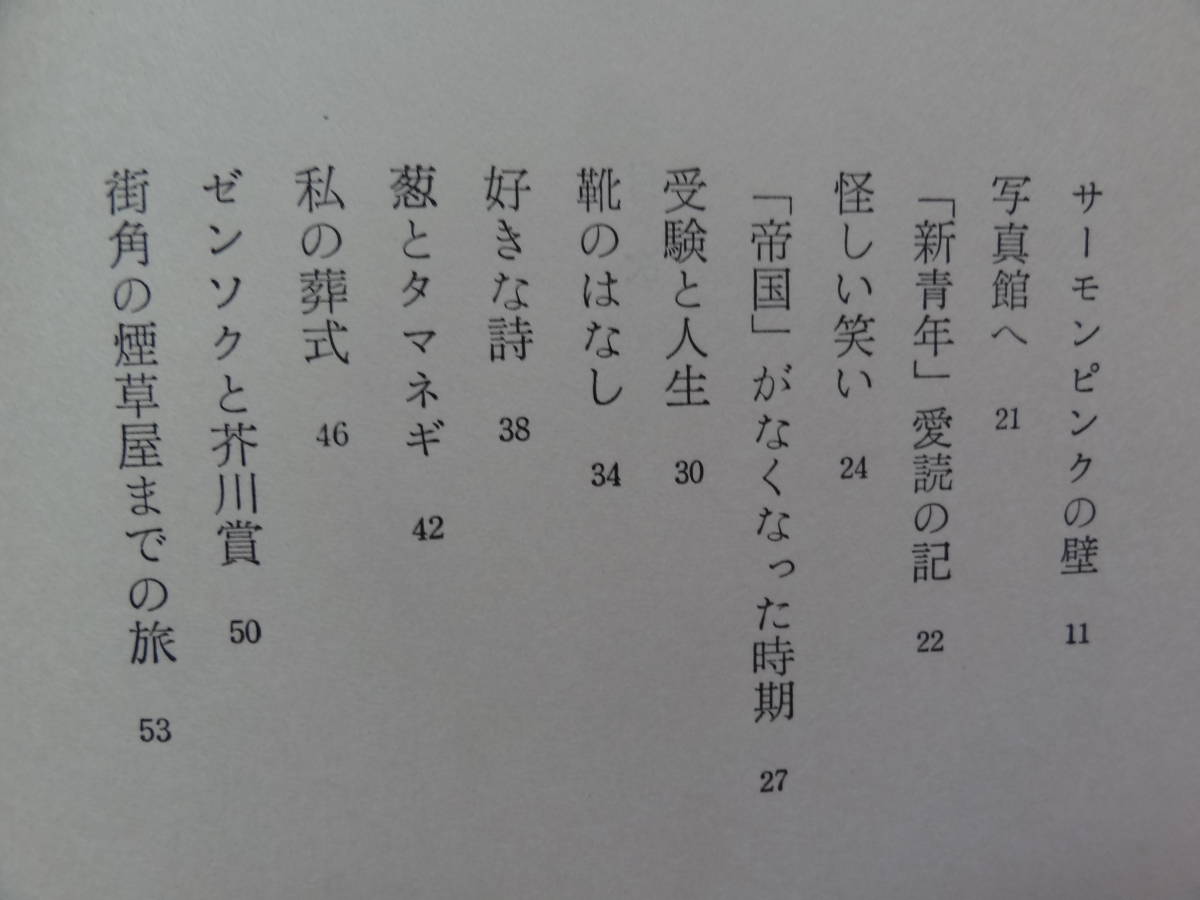 サーモンピンクの壁 11
写真館へ 21
「新青年」愛読の記 22
怪しい笑い 24
「帝国」がなくなった時期 27
受験と人生 30
靴のはなし 34
好きな詩 38
葱とタマネギ 42
私の葬式 46
ゼンソクと芥川賞 50
街角の煙草屋までの旅 53